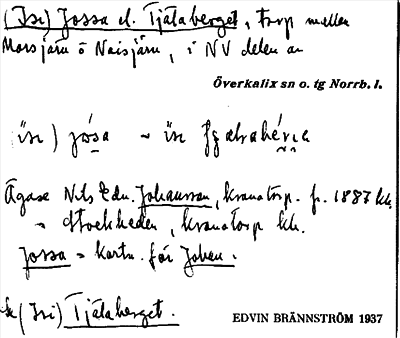 (Isi) Jossa el. Tjäla berget, torp mellan
Morsjärv o Naisjärv, i NV delen av
Överkalix sn o. tg Norrb. l.
isi) jósa ~ isi
Ägare Nils Edv. Johansson, kronotorp. f. 1887
Stockheden, kronotorp
Jossa = kortn. för Johan.
(Isi) Tjäla berget.
EDVIN BRÄNNSTRÖM 1937